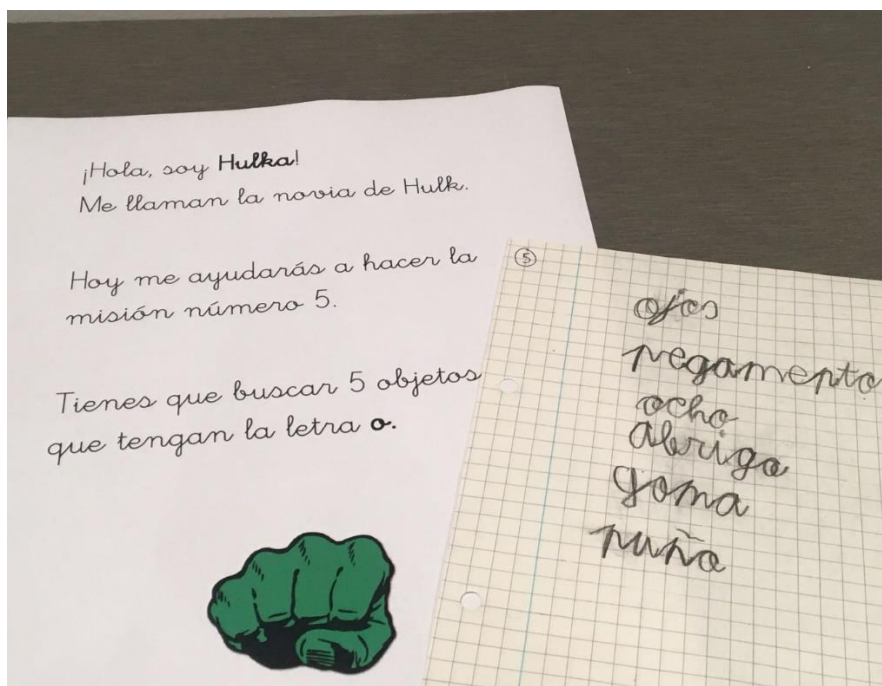 ¡Hola, soy Hulka!
Me llaman la novia de Hulk.
Hoy me ayudarás a hacer la
misión número 5.
Tienes que buscar 5 objetos
que tengan la letra o.
5
ojos
pegamento
ocho
abrigo
goma
puño